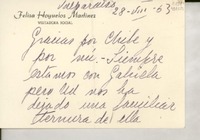 Valparaíso
28-VIII-53
Felisa Hoyuelos Martinez
VISITADORA SOCIAL
Gracias por Chile y
por mí. Siempre
estamos con Gabriela
pero Ud nos ha
dejado una familiar
ternura de ella